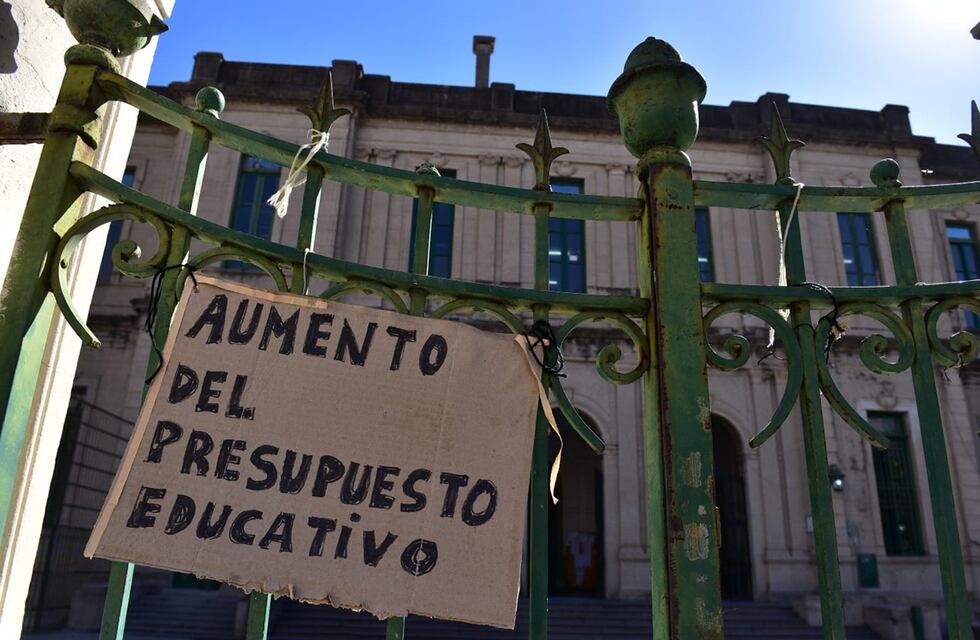 AUMENTO
DEL
PRESUPUESTO
EDUCATIVO